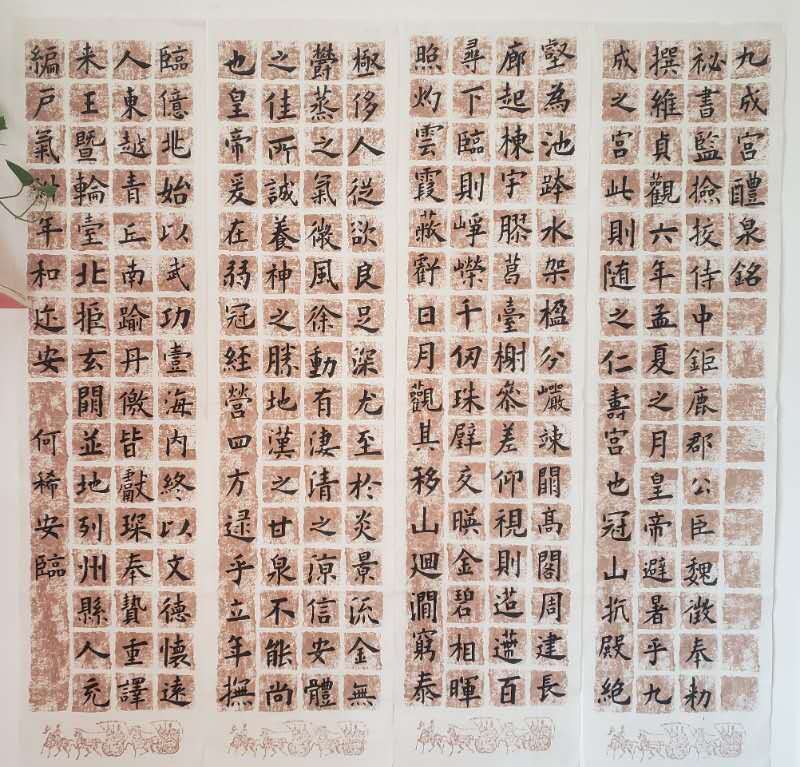 九成宮醴泉銘
祕書監撿挍侍中鉅鹿郡公臣魏徵奉勑
撰維貞觀六年孟夏之月皇帝避暑乎九
成之宮此則随之仁壽宮也冠山抗殿絶
壑為池跨水架楹分巖竦闕高閣周建長
廊起棟宇膠葛臺榭參差仰視則迢遰百
尋下臨則崢嶸千仞珠璧交暎金碧相暉
照灼雲霞蔽虧日月觀其移山迴澗窮泰
極侈人從欲良足深尤至於炎景流金無
鬱蒸之氣微風徐動有凄清之涼信安體
之佳所誠養神之勝地漢之甘泉不能尚
也皇帝爰在弱冠經營四方逮乎立年撫
臨億兆始以武功壹海內終以文德懷遠
人東越青丘南踰丹儌皆獻琛奉贄重譯
来王暨輪臺北拒玄闕並地列州縣人充
編戶氣淑年和迩安 何稀安臨